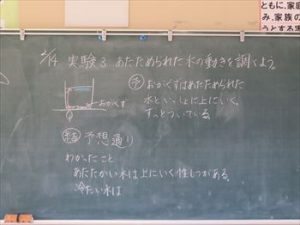 2/14 実験3 あたためられた水の動きを調べよう。
予 おがくずはあたためられた
水といっしょに上にいく。
ずっとついている。
おがくず
結 予想通り
わかったこと
あたたかい水は上にいく性しつがある。
冷たい水は
ともに、家
み、家族の
うとする